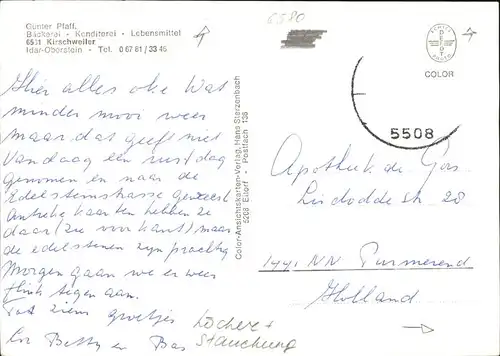 Günter Pfaff,
Bäckerei · Konditerei · Lebensmittel
6581 Kirschweiler
Idar-Oberstein · Tel. 0 67 81 / 33 45
6580
SCHUTZ
COLOR
5508
Color-Ansichtskarten-Verlag, Hans Sterzenbach
5208 Eitorf · Postfach 135
Hier alles oke Wat
minder mooi weer
maar dat geeft niet
Vandaag een rustdag
genomen en naar de
Edelsteinstrasse geweest
Antieke kaarten hebben ze
daar (zie voorkant) maar
de edelstenen zijn prachtig
Morgen gaan we er weer
flink tegen aan.
Tot ziens groetjes
Betty en Bas
Löcher +
Stauchung
Apotheek de Gors
20
1441 NN Purmerend
Holland